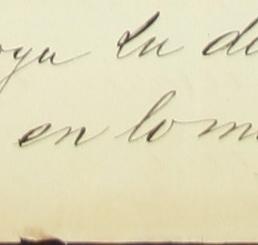 oya tu de
en lom